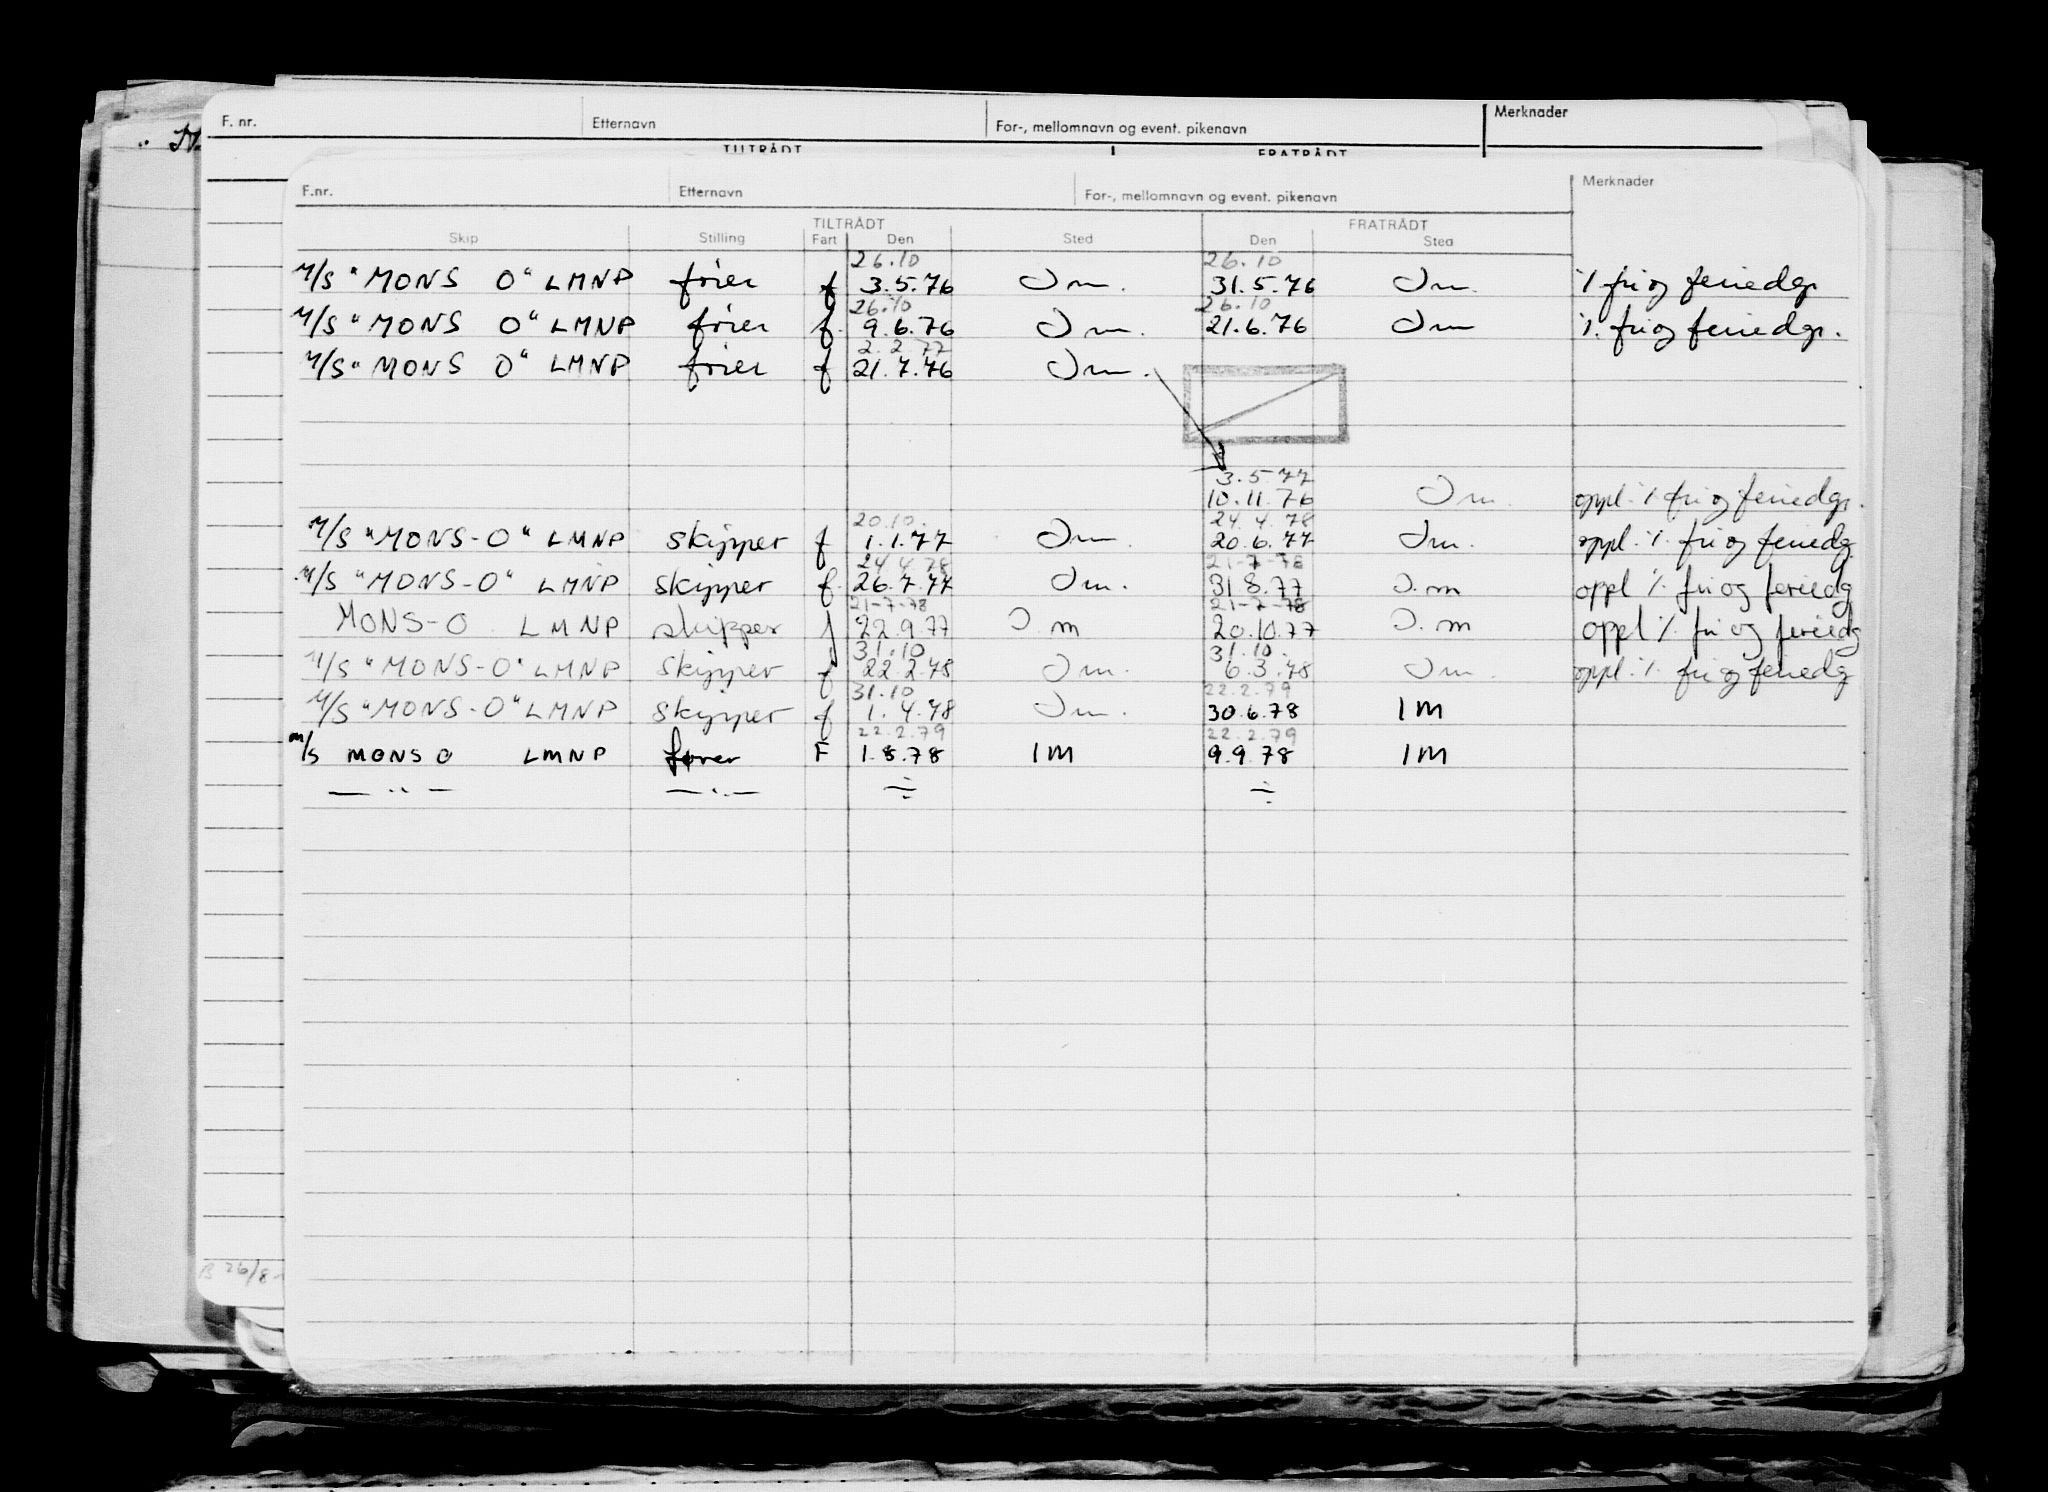 F. nr. Etternavn For-, mellomnavn og event. pikenavn Merknader
TILTRÅDT FRATRÅDT
F.nr. Etternavn For-, mellomnavn og event. pikenavn Merknader
TILTRÅDT FRATRÅDT
Skip Stilling Fart Den Sted Den Sted
26.10 26.10
M/S "MONS O" LMNP fører f 3.5.76 Im. 31.5.76 Im. % fri og feriedgr
26.10 26.10
M/S "MONS O" LMNP fører f. 9.6.76 Im. 21.6.76 Im %. fri og feriedgr.
2.2.77
M/S "MONS O" LMNP fører f 21.7.76 Im.
3.5.77
10.11.76 Im. oppl. % fri og feriedgr.
20.10. 24.4.78
M/S "MONS-O" LMNP skipper f 1.1.77 Im. 20.6.77 Im. oppl. %. fri og feriedg
24.4.78 21-7-78
M/S "MONS-O" LMNP skipper f. 26.7.77 Im. 31.8.77 I.m oppl %. fri og feriedg
21-7-78 21-7-78
MONS-O LMNP skipper f 22.9.77 I.m 20.10.77 I.m oppl % fri og feriedg
31.10 31.10.
M/S "MONS-O" LMNP skipper f 22.2.78 Im. 6.3.78 Im. oppl. %. fri og feriedg
31.10 22.2.79
M/S "MONS-O" LMNP skipper f 1.4.78 Im. 30.6.78 IM
22.2.79 22.2.79
m/s MONS O LMNP fører F 1.8.78 IM 9.9.78 IM
— " — — " — ÷ ÷
B 26/8